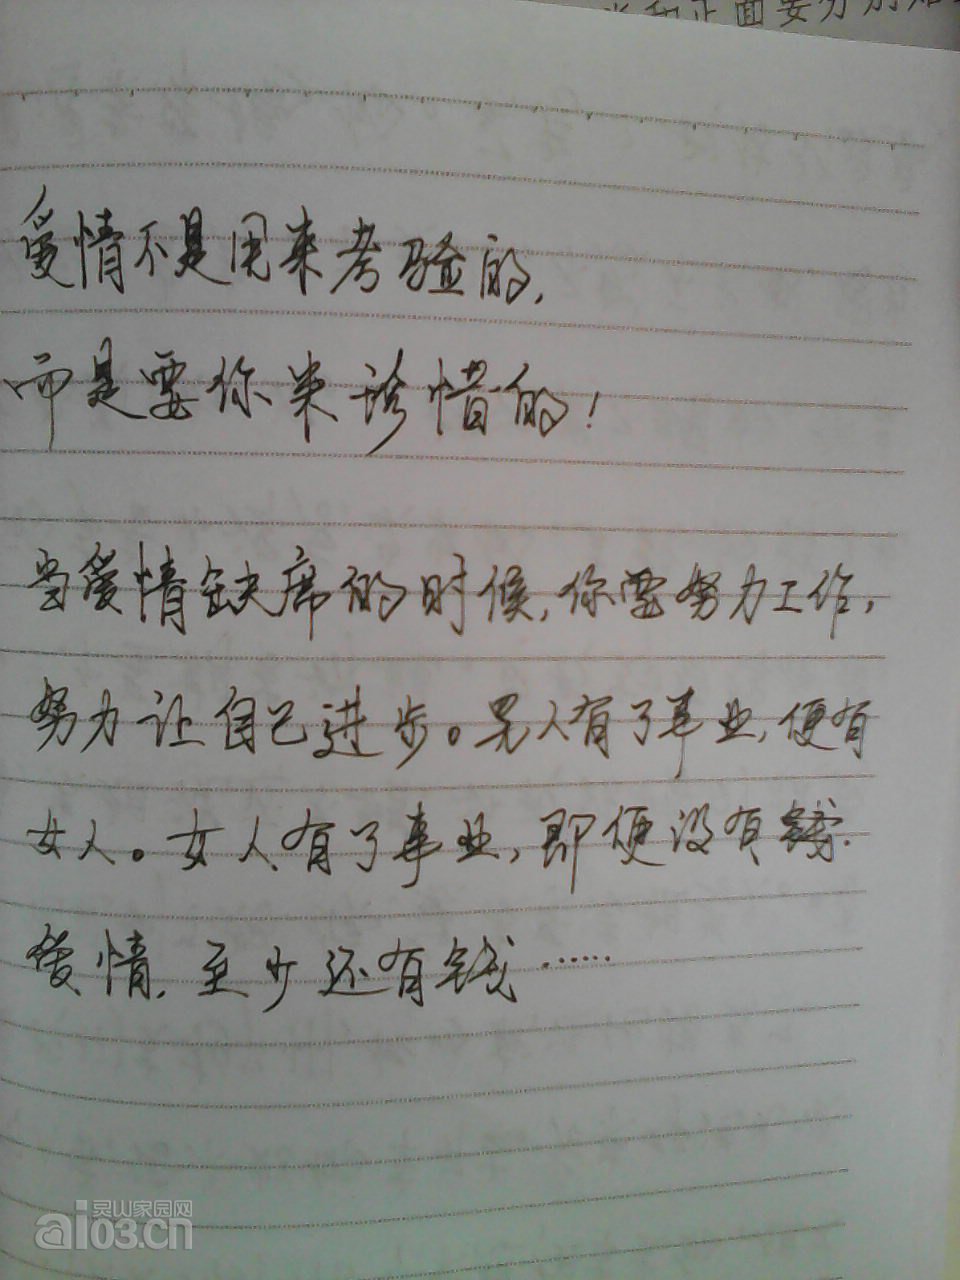 和正面要分别
爱情不是用来考验的，
而是要你来诊惜的！
当爱情缺席的时候，你要努力工作，
努力让自己进步。男人有了事业，便有
女人。女人有了事业，即便没有钱.
爱情，至少还有钱……
灵山家园网
ai03.cn